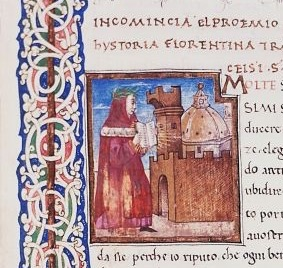 INCOMINCIA EL PROEMIO
HYSTORIA FIORENTINA TRA
CEISI. S
MOLTE S
SIMI S
ducere
ze. eleg
do arti
ubidire
to port
avostr
da sie. perche io riputo. che ogni ben